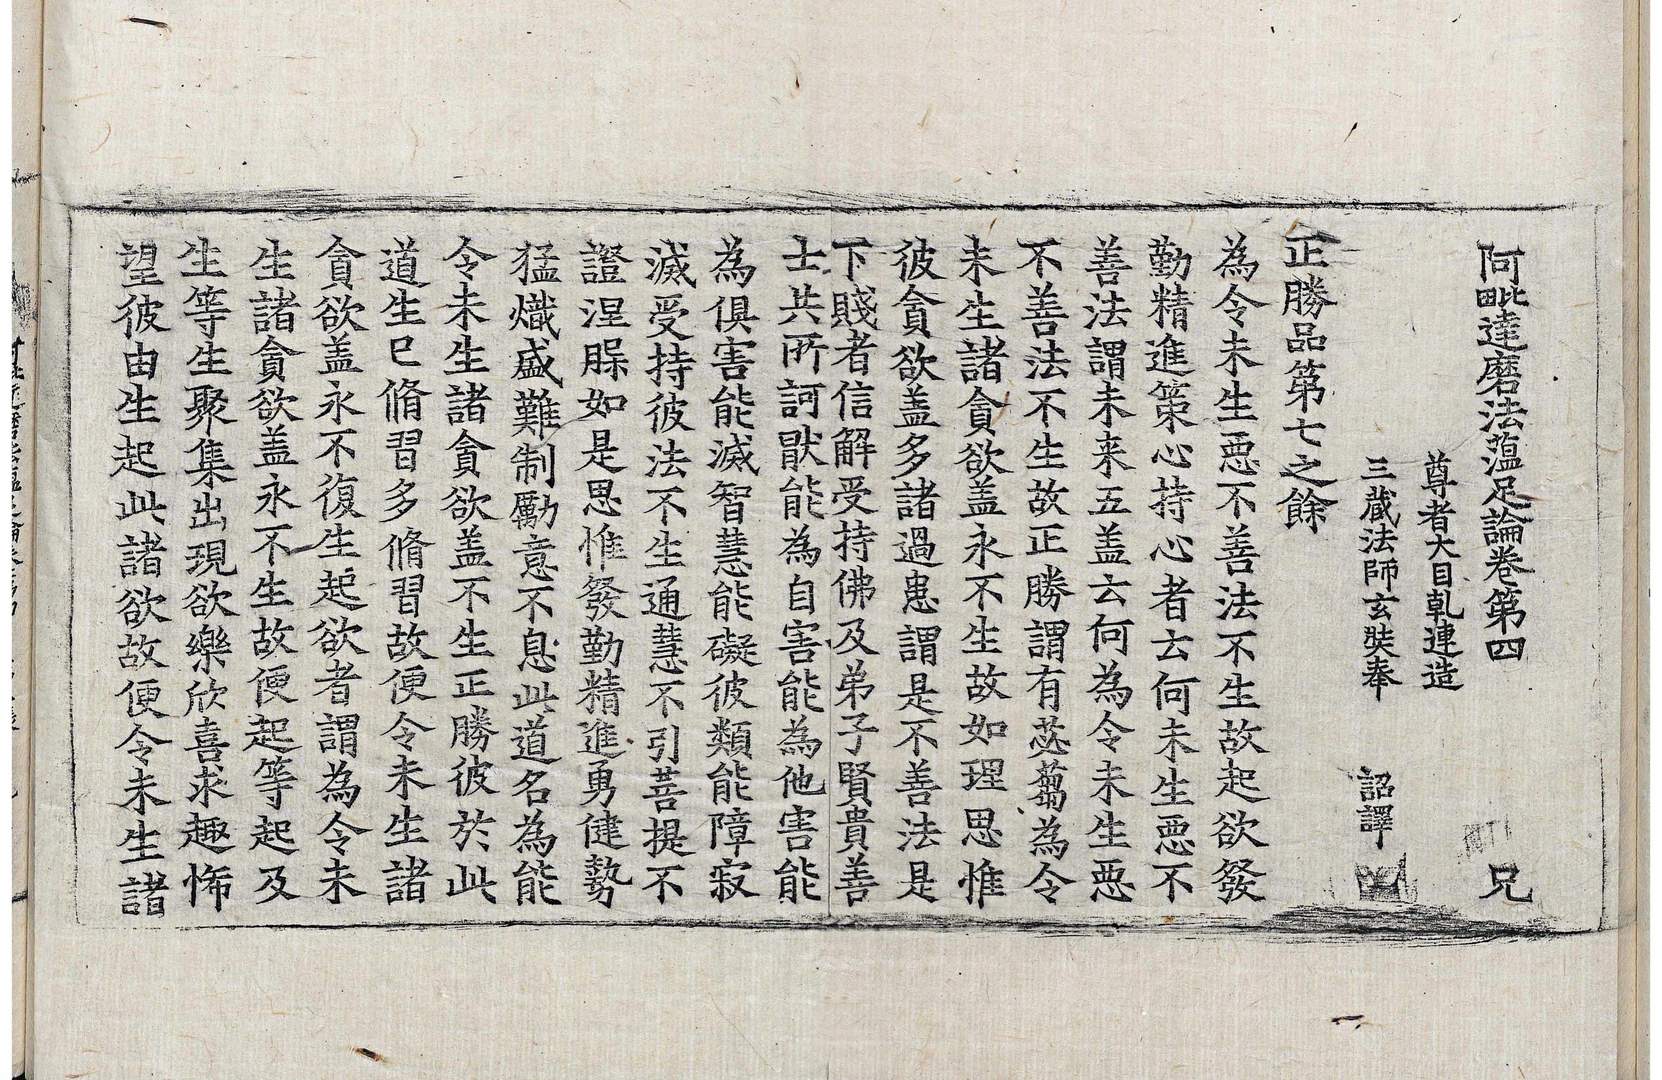 阿毗達磨法蕴足論卷第四 兄
尊者大目乹連造
三蔵法師玄奘奉 詔譯
正勝品第七之餘
為令未生惡不善法不生故起欲發
勤精進策心持心者云何未生惡不
善法謂未来五盖云何為令未生惡
不善法不生故正勝謂有苾蒭為令
未生諸貪欲盖永不生故如理思惟
彼貪欲盖多諸過患謂是不善法是
下賤者信解受持佛及弟子賢貴善
士共所訶猒能為自害能為他害能
為俱害能滅智慧能礙彼類能障寂
滅受持彼法不生通慧不引菩提不
證涅槃如是思惟發勤精進勇健勢
猛熾盛難制勵意不息此道名為能
令未生諸貪欲盖不生正勝彼於此
道生巳脩習多脩習故便令未生諸
貪欲盖永不復生起欲者謂為令未
生諸貪欲盖永不生故便起等起及
生等生聚集出現欲樂欣喜求趣悕
望彼由生起此諸欲故便令未生諸